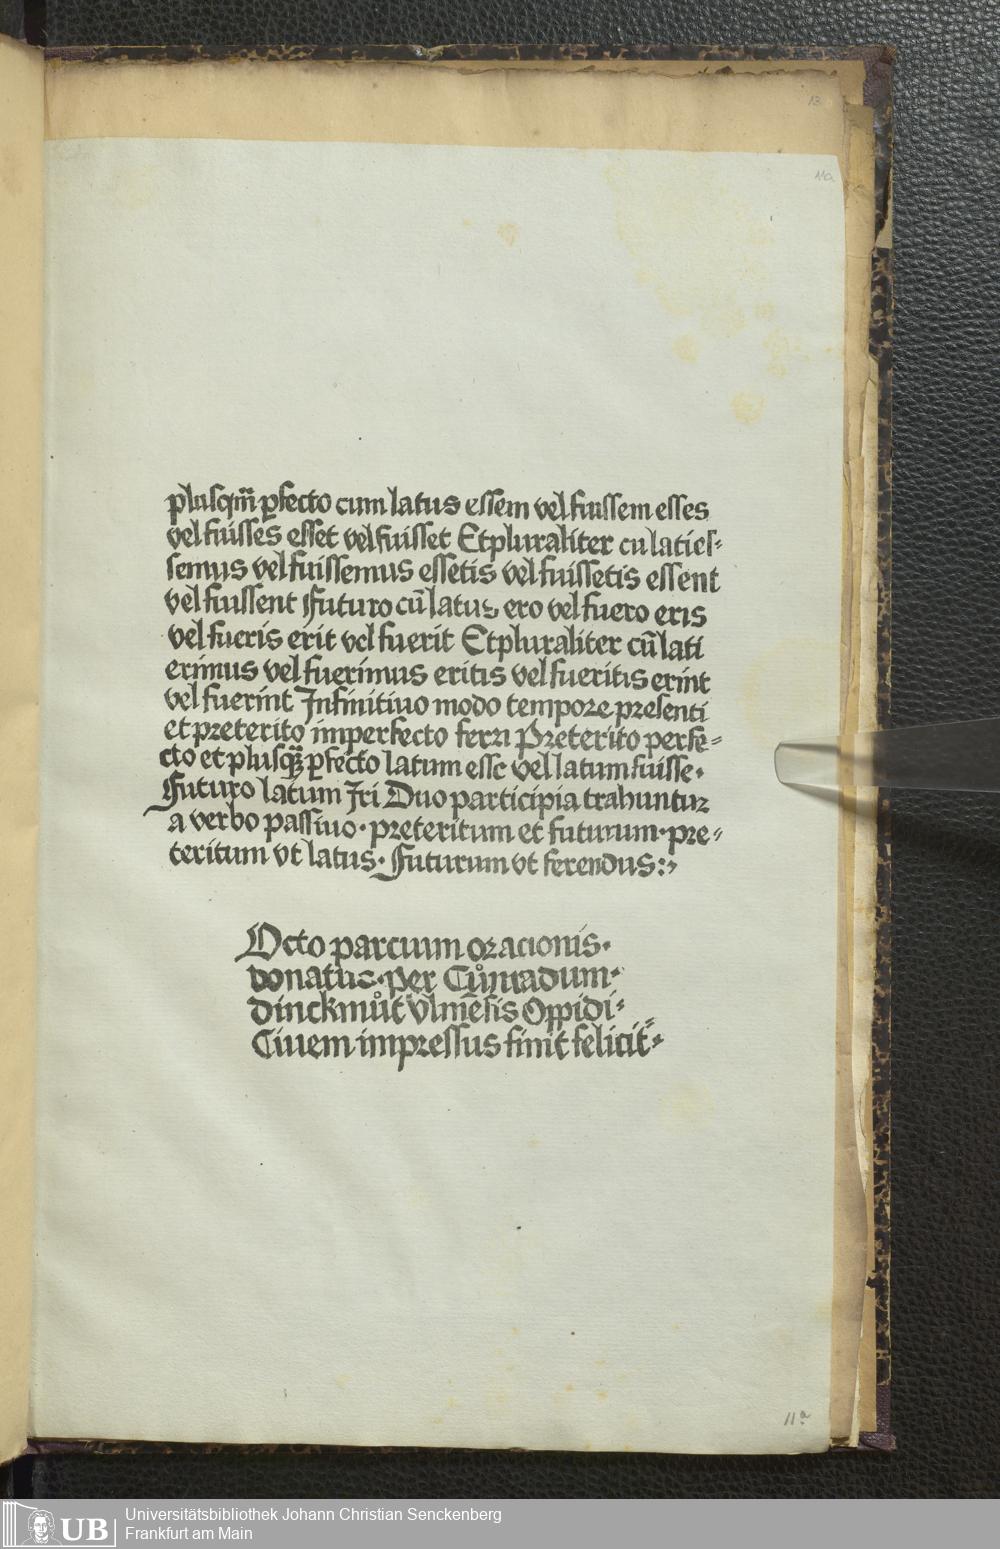 13
11a
plusqm̄ ꝑfecto cum latus essem vel fuissem esses
vel fuisses esset vel fuisset Et pluraliter cu laties⸗
semus vel fuissemus essetis vel fuissetis essent
vel fuissent Futuro cū latus ero vel fuero eris
vel fueris erit vel fuerit Et pluraliter cū lati
erimus vel fuerimus eritis vel fueritis erint
vel fuerint Infinitiuo modo tempore presenti
et preterito imperfecto ferri Preterito perfe⸗
cto et plusqꝫ̄ ꝑfecto latum esse vel latum fuisse·
Futuro latum Iri Duo participia trahuntur
a verbo passiuo· preteritum et futurum· pre⸗
teritum vt latus· Futurum vt ferendus:,
Octo parcium oracionis·
donatus· per Cůnradum·
dinckmůt vlmēsis Oppidi⸗
Ciuem impressus finit felicit̄⸗
11a
UB
Universitätsbibliothek Johann Christian Senckenberg
Frankfurt am Main